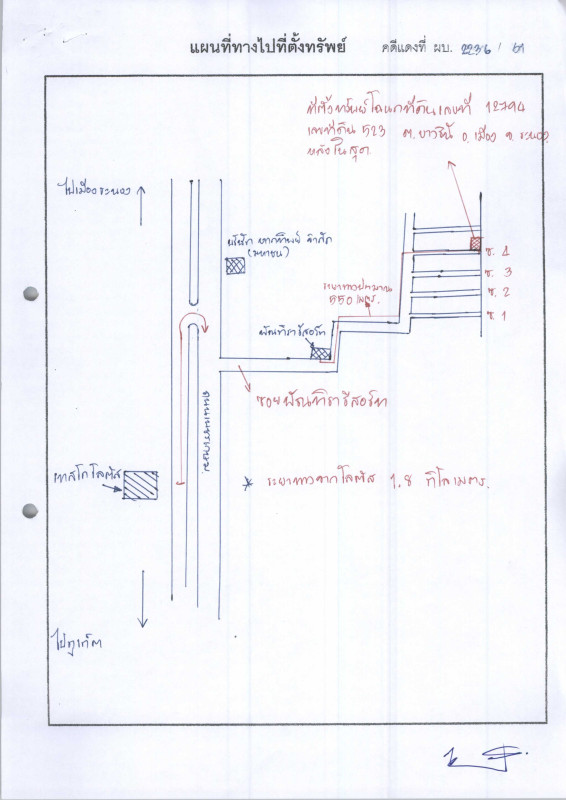 แผนที่ทางไปที่ตั้งทรัพย์ คดีแดงที่ ผบ. 2236 / 61
ที่ตั้งทรัพย์โฉนดที่ดินเลขที่ 12794
เลขที่ดิน 523 ต.บางริ้น อ.เมือง จ.ระนอง
หลังในสุด
ไปเมืองระนอง
บริษัท จำกัด
(มหาชน)
ซ. 4
ซ. 3
ซ. 2
ซ. 1
ระยะทางประมาณ
550 เมตร.
พัณทิรารีสอร์ท
ซอยพัณทิรารีสอร์ท
ถนนเพชรเกษม
เทสโก โลตัส
* ระยะทางจากโลตัส 1.8 กิโลเมตร.
ไปภูเก็ต